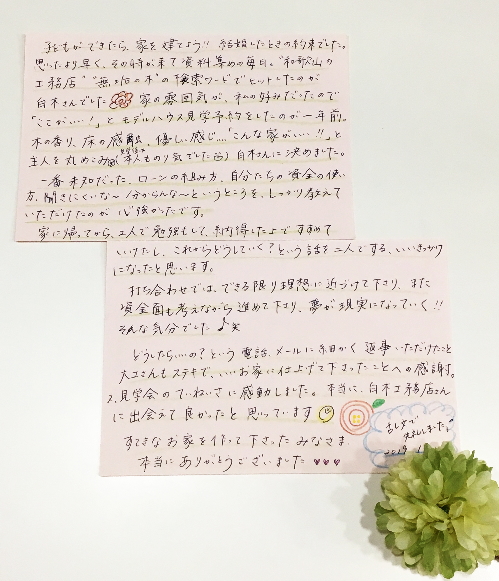 子どもができたら、家を建てよう!! 結婚したときの約束でした。
思ったより早く、その時が来て資料集めの毎日。"和歌山の
工務店" "無垢の木"の検索ワードでヒットしたのが
白木さんでした 家の雰囲気が、私の好みだったので
「ここがいい!」とモデルハウス見学予約をしたのが一年前。
木の香り、床の感触、優しい感じ…"こんな家がいい!!"と
主人を丸めこみ(本人もノリ気でした)白木さんに決めました。
一番未知だった、ローンの組み方、自分たちの資金の使い
方、聞きにくいな~分からんな~というところを、しっかり教えて
いただけたのが心強かったです。
家に帰ってから、二人で勉強もして、納得した上ですすめて
いけたし、これからどうしていく?という話を二人でする、いいきっかけ
になったと思います。
打ち合わせでは、できる限り理想に近づけて下り、また
資金面も考えながら進めて下り、夢が現実になっていく!!
そんな気分でした♪笑
どうしたらいいの?という電話、メールに細かく返事いただけたこと
大工さんもステキで、いいお家に仕上げて下さったことへの感謝。
見学会のていねいさに感動しました。本当に、白木工務店さん
に出会えて良かったと思っています
すてきなお家を作って下さったみなさま
本当にありがとうございました ♥♥♥
2019